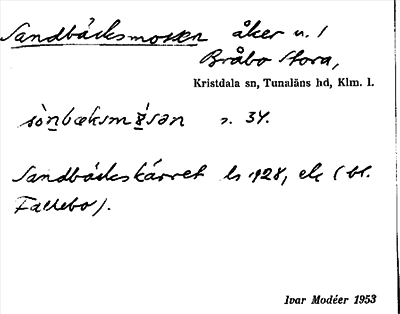 Sandbäcksmossen åker u. 1
Bråbo Stora,
Kristdala sn, Tunaläns hd, Klm. l.
sònbæksm sən s. 34.
Sandbäckskärret ls 1928, ek (bl.
Fallebo).
Ivar Modéer 1953